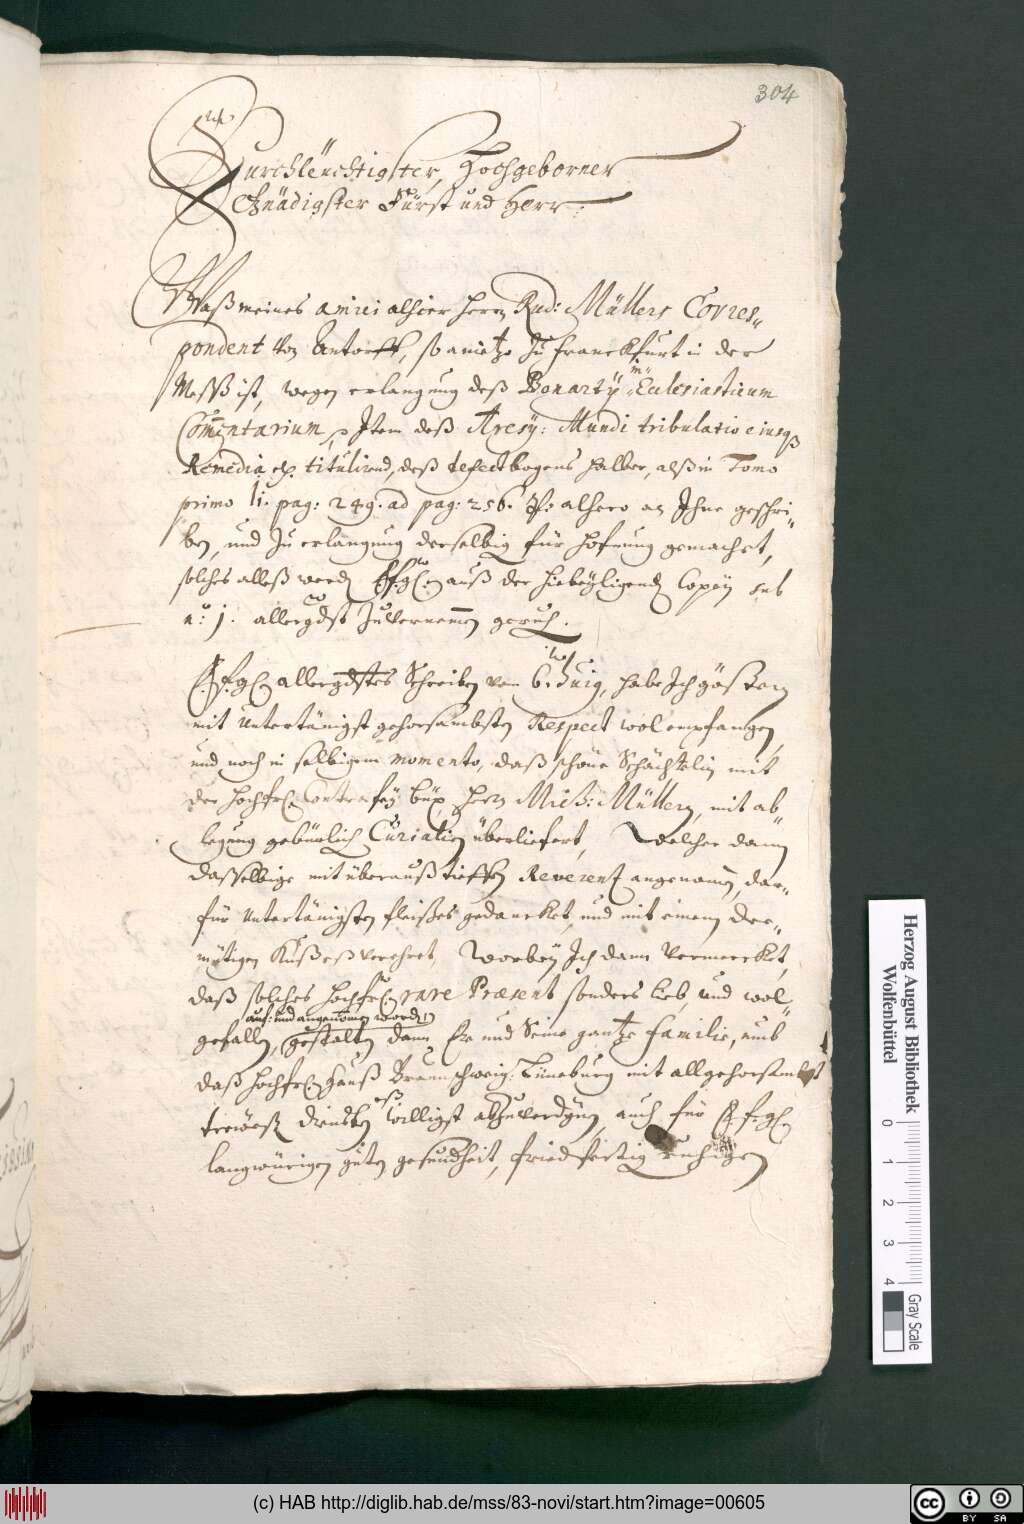 304
Durchleuchtigster, Hochgeborner
Gnädigster Fürst und Herr:
Waß meines amici alhier Herrn Rud: Müllers Corres-
pondent von Antorff, so anietzo zu Franckfurt in der
Meß ist, wegen erlangung deß Bonartÿ in Eclesiasticum
Comentarium, Item deß Aresÿ: Mundi tribulatio eiusq
Remedia titulirend, deß defectbogens halber, alß in Tomo
primo li. pag: 249. ad pag: 256. alhero an Ihne geschri-
ben, und zu erlangung derselbig für hofnung gemachet,
solches alleß werd E.f.g. auß der hiebeÿligend Copeÿ sub
n: 1. allergdst zuvernemen geruh.
E.f.g. allergdstes Schreiben vom 6. huig, habe Ich gösteren
mit Untertänigst gehorsambsten Respect wol empfangen,
und noch in selbigem momento, daß schöne Schächtelin mit
der hochfr. Contrafeÿ büx, Herrn Mich: Müllern, mit ab-
legung gebürlich Curialien überliefert, Welcher dann
dasselbige mit überauß tieffen Reverentz angenomen, dar-
für Untertänigsten fleißes gedancket, und mit einem dee-
mütigen Kuß eß verehret, Worbeÿ Ich dann vermercket,
daß solches hochfr. rare Præsent sonders lieb, und wol
auf: und angenomen worden
gefallen, gestalten dann Er und Seine gantze familie, umb
daß hochfr. Hauß Braunschweig: Lüneburg mit allgehorsambst
treweß diensten willigst abzuverdynen, auch für E.f.g.
langwürigen guten gesundheit, friedfertig ruhigen
Herzog August Bibliothek
Wolfenbüttel
0 1 2 3 4
Gray Scale
(c) HAB http://diglib.hab.de/mss/83-novi/start.htm?image=00605
cc BY SA